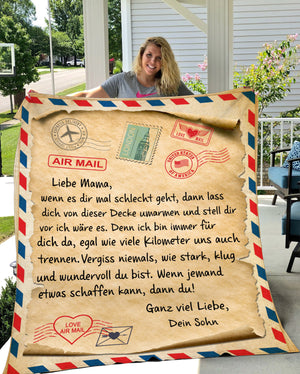 AIR MAIL
LOVE MAIL
UNITED STATES
OF AMERICA
Liebe Mama,
wenn es dir mal schlecht geht, dann lass
dich von dieser Decke umarmen und stell dir
vor ich wäre es. Denn ich bin immer für
dich da, egal wie viele Kilometer uns auch
trennen. Vergiss niemals, wie stark, klug
und wundervoll du bist. Wenn jemand
etwas schaffen kann, dann du!
Ganz viel Liebe,
Dein Sohn
LOVE
AIR MAIL